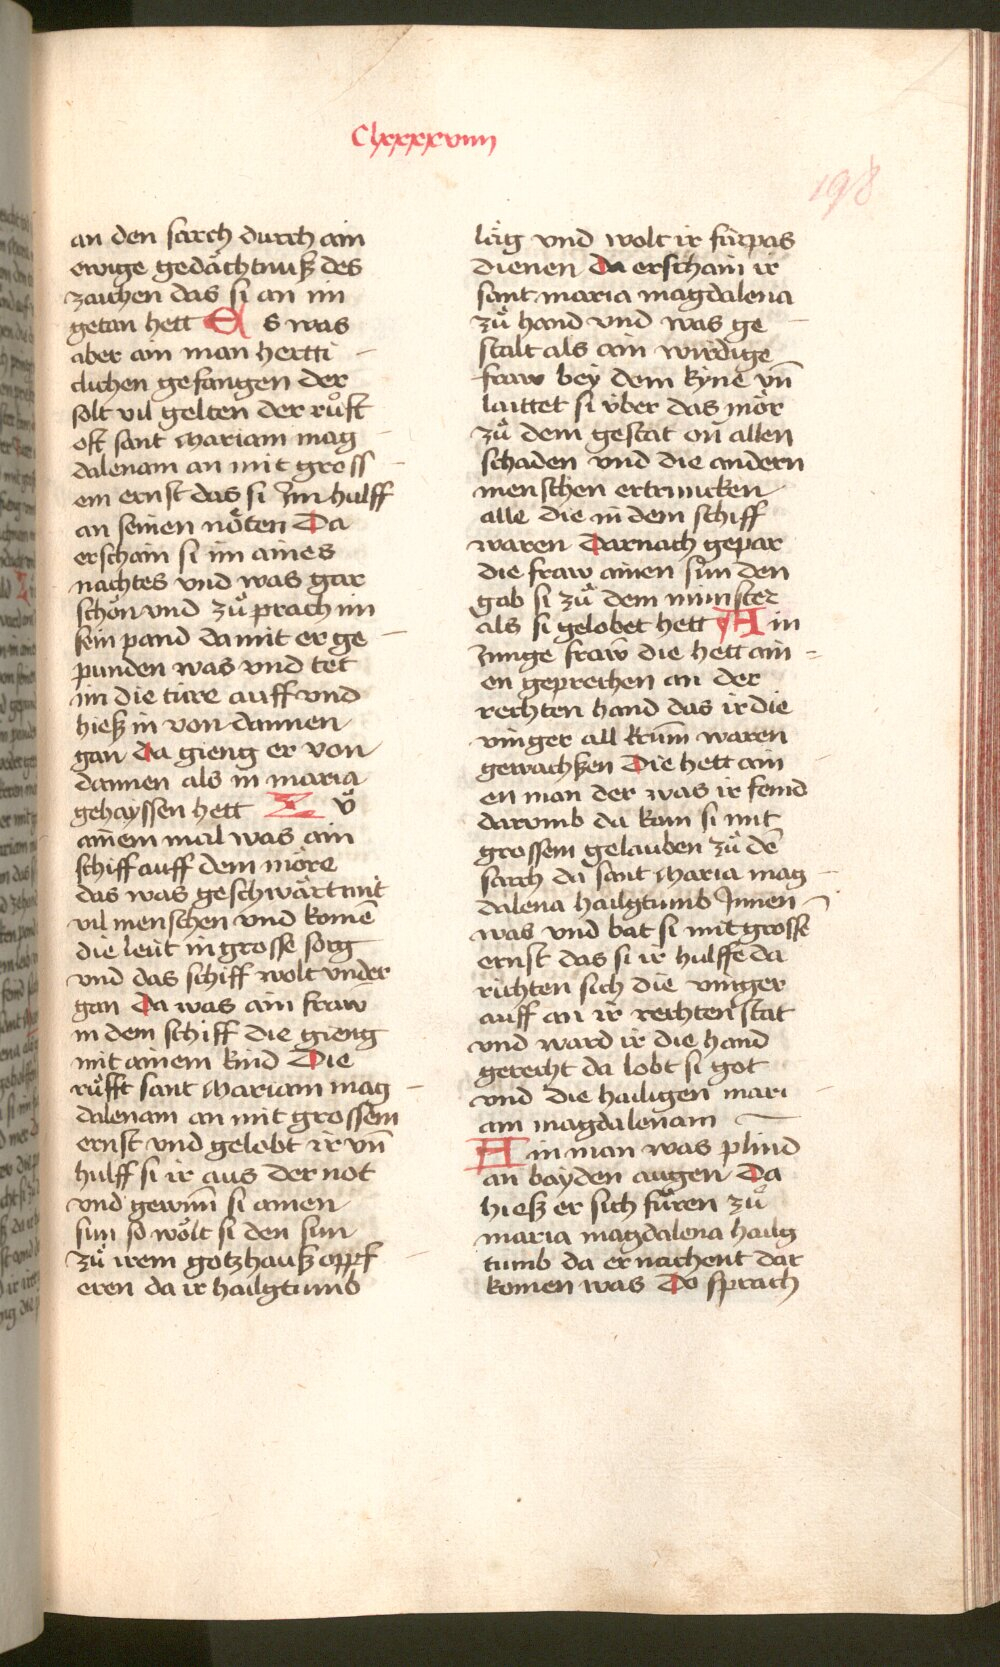 Clxxxxviiii
198
an den sarch durch ain
ewige gedächtnuß des
zaichen das si an im
getan hett Es was
aber ain man hertti
clichen gefangen der
solt vil gelten der ruͦft
oft sant Mariam mag
dalenam an mit gross
em ernst das si im hulff
an seinen nöten Da
erschain si im aines
nachtes vnd was gar
schön vnd zuͦ prach im
sein pand da mit er ge
punden was vnd tet
im die ture auff vnd
hieß in von dannen
gan da gieng er von
dannen als in maria
gehayssen hett Zuͦ
ainem mal was ain
schiff auff dem möre
das was geschwärt mit
vil menschen vnd komē
die leüt in grosse sorg
vnd das schiff wolt vnder
gan Da was ain fraw
in dem schiff die gieng
mit ainem kind Die
ruͦfft sant Mariam mag
dalenam an mit grossem
ernst vnd gelobt ir vnd̄
hulff si ir aus der not
vnd gewinn si ainen
sun so wölt si den sun
zuͦ irem gotzhauß oppf
eren da ir hailgtumb
läg vnd wolt ir fürpas
dienen da erschain ir
sant maria magdalena
zuͦ hand vnd was ge
stalt als ain wirdige
fraw bey dem kyne vn̄
laittet si über das mör
zuͦ dem gestat on allen
schaden vnd die andern
menschen ertruncken
alle die in dem schiff
waren Darnach gepar
die fraw ainen sun den
gab si zuͦ dem münster
als si gelobet hett Ain
Junge fraw die hett ain
en geprechen an der
rechten hand das ir die
vinger all krūm waren
gewachßen Die hett ain
en man der was ir feind
darumb da kom si mit
grossem gelauben zuͦ dē
sarch da sant Maria mag
dalena hailgtumb Innen
was vnd bat si mit grosse
ernst das si ir hulffe da
richten sich die vinger
auff an ir rechten stat
vnd ward ir die hand
gerecht da lobt si got
vnd die hailigen mari
am magdalenam
Ain man was plind
an bayden augen Da
hieß er sich füren zuͦ
maria magdalena hailg
tumb da er nachent dar
komen was Do sprach